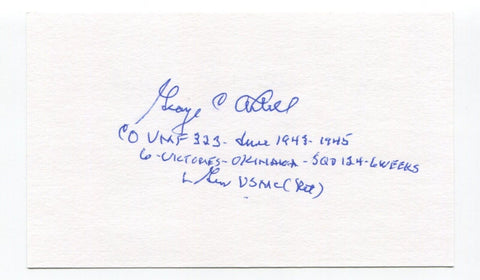 George C Axtell
CO VMF 323 - June 1943 - 1945
6 - VICTORIES - OKINAWA - SQD 124 - 6 WEEKS
L Gen USMC (Ret)